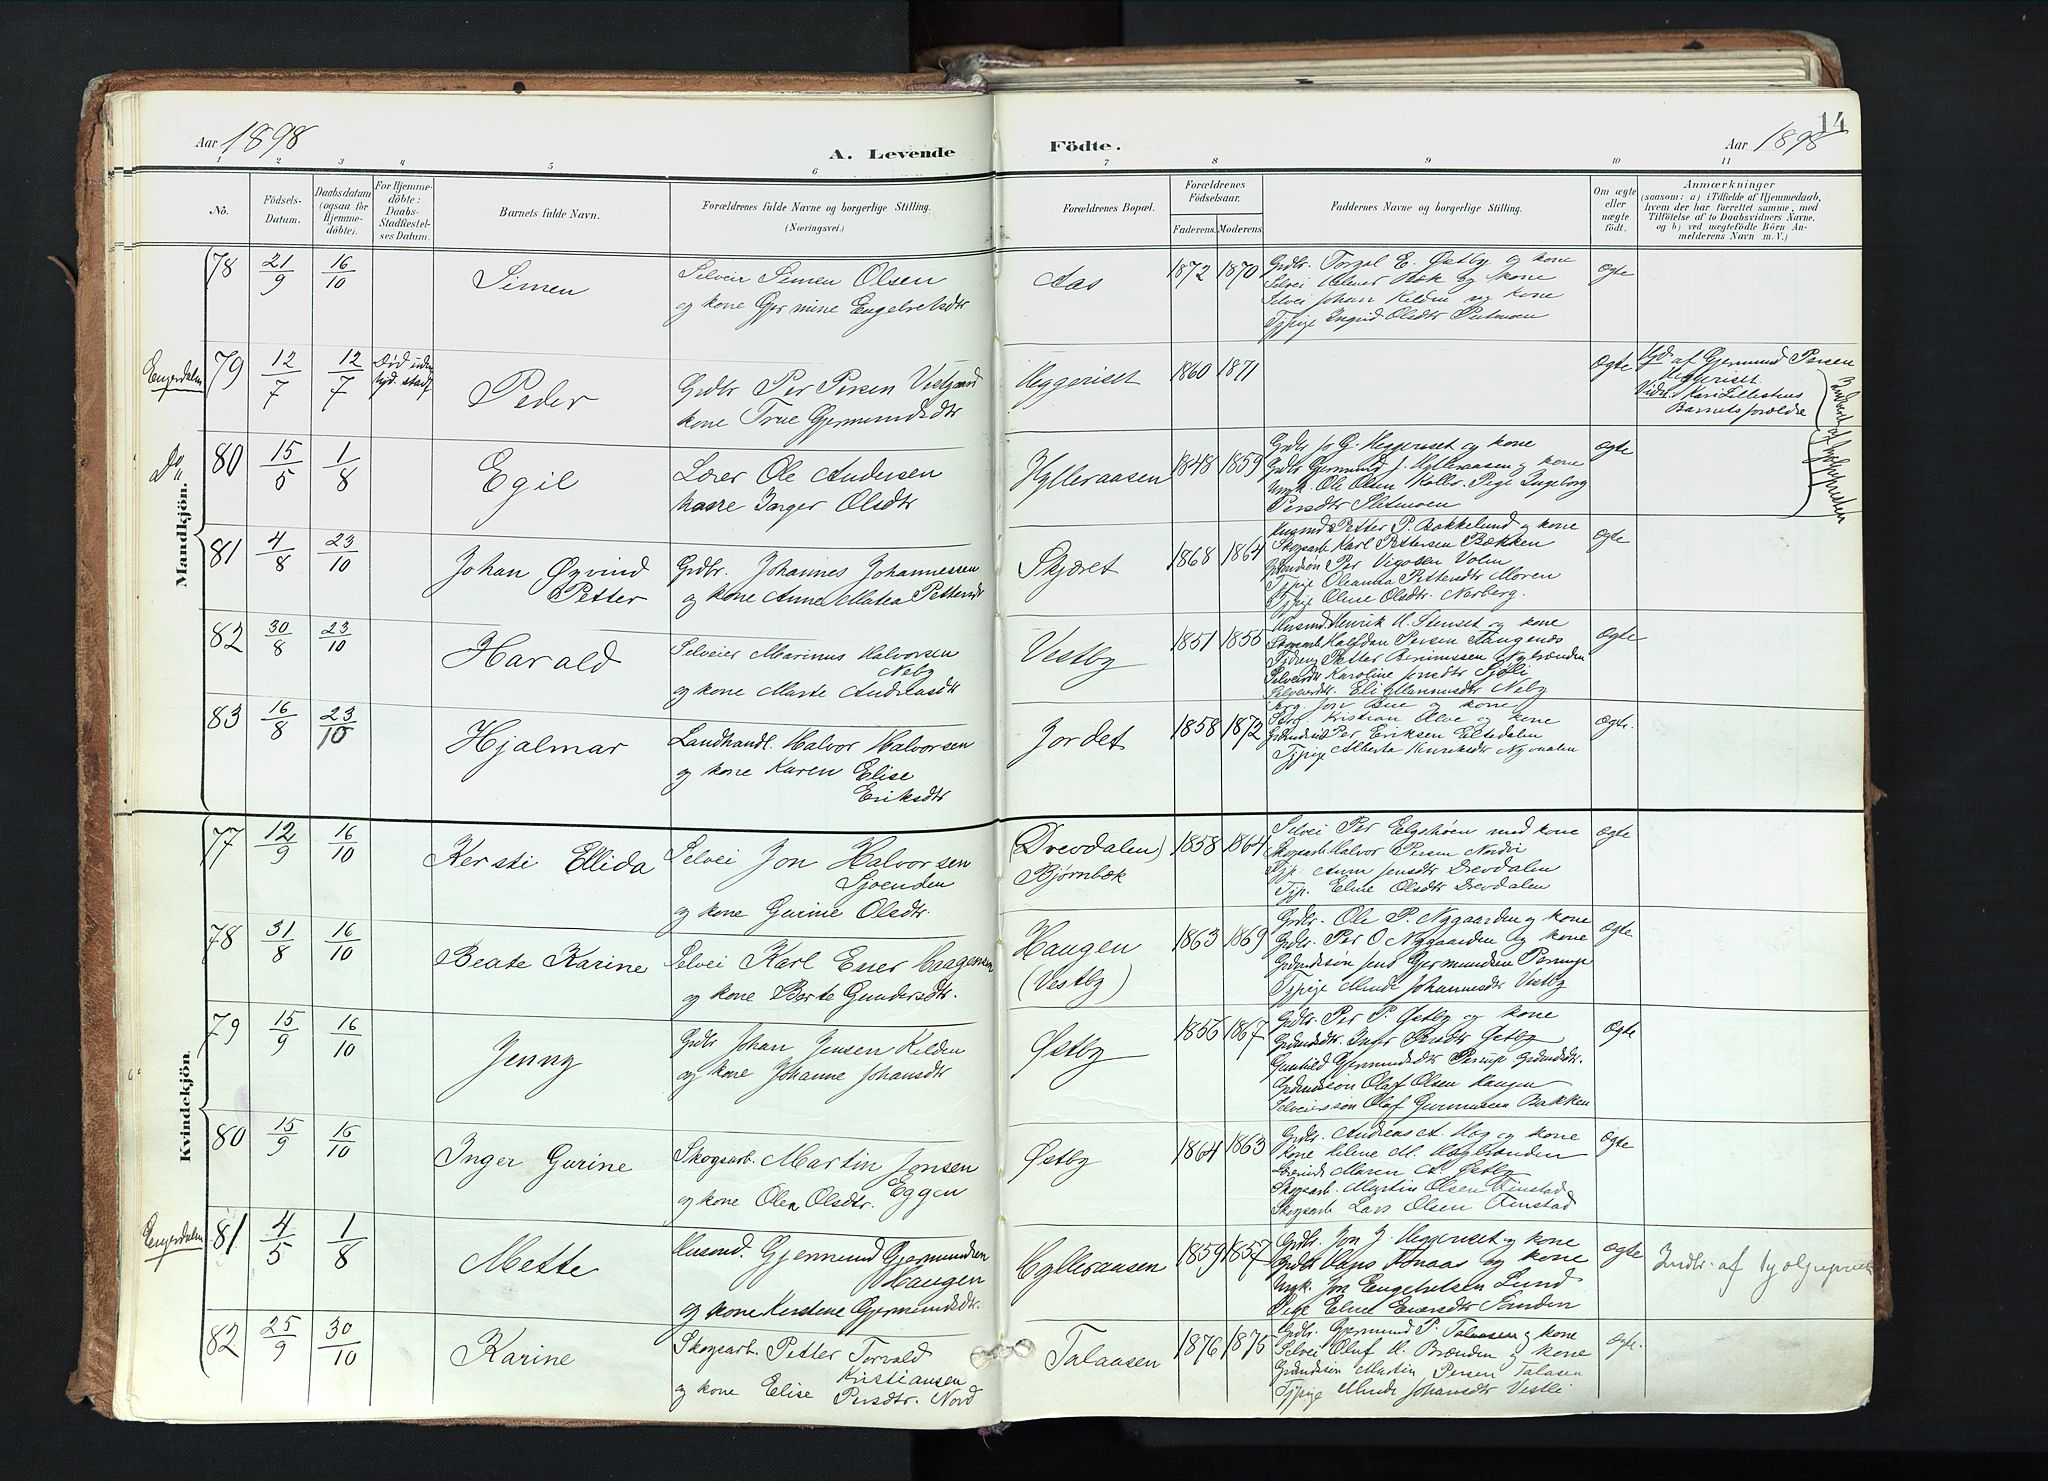 14
Aar 1898
A. Levende
Födte.
Aar 1898
1 2 3 4 5 6 7 8 9 10 11
No.
Födsels-Datum.
Daabsdatum (ogsaa for Hjemmedöbte).
For Hjemmedöbte: Daabs-Stadfæstelses Datum.
Barnets fulde Navn.
Forældrenes fulde Navne og borgerlige Stilling.
(Næringsvei.)
Forældrenes Bopæl.
Forældrenes Födselsaar.
Faderens. Moderens.
Faddernes Navne og borgerlige Stilling.
Om ægte eller uægte födt.
Anmærkninger
(saasom: a) i Tilfælde af Hjemmedaab, hvem der har forrettet samme, med Tilföielse af to Daabsvidners Navne, og b) ved uægtefödte Börn Anmelderens Navn m. V.)
Mandkjön.
78 21/9 16/10 Simen
Selveier Simen Olsen
og kone Gjermine Engebretsdtr
Aas 1872 1870
Grdbr. Torgal E. Østby og kone
Selvei Helmer Bæk og kone
Selvei Johan Kilden og kone
Tjpige Ingrid Olsdtr
Ægte
Engerdalen 79 12/7 12/7 Død Peder
Grdbr Per Persen Vestgaard
kone True Gjermundsdtr
Heggeriset 1860 1871
Ægte
af Gjermund Persen
Heggeriset
Barnets forældre
Do 80 15/5 1/8 Egil
Lærer Ole Andersen
kone Inger Olsdtr
Hylleraasen 1848 1859
Grdbr Jo G. Heggeriset og kone
Grdbr Gjermund J. Hylleraasen og kone
Ungk. Ole Olsen Koller. Pige Ingeborg
Persdtr Sletmoen
Ægte
81 4/8 23/10 Johan Øyvind
Petter
Grdbr. Johannes Johannessen
og kone Anne Matea Pettersdtr
Skjæret 1868 1864
Petter P. Bakkelund og kone
Skogsarb Karl Pettersen Bækken
Per Vigosen Volm
Tjpige Oleanna Pettersdtr Moren
Tjpige Oline Olsdtr. Norberg.
Ægte
82 30/8 23/10 Harald
Selveier Marinus Halvorsen
Neby
og kone Marte Andreasdtr
Vestby 1851 1855
Henrik H. Stenset og kone
Skogsarb Halfdan Persen Haugenæs
Petter
Karoline Jonsdtr Sjøli
Selveierdtr. Eli Marinusdtr Neby
Ægte
83 16/8 23/10 Hjalmar
Landhandl. Halvor Halvorsen
og kone Karen Elise
Eriksdtr
Jordet 1858 1872
Jon Bue og kone
Kristian Alve og kone
Per Eriksen Elsedalen
Tjpige Alberta Henriksdtr
Ægte.
Kvindekjön.
77 12/9 16/10 Kersti Ellida
Selvei Jon Halvorsen
Sjoenden
og kone Gurine Olsdtr.
(Drevdalen)
Bjørnbæk 1858 1864
Selvei Per Elgshøen med kone
Skogsarb Halvor Persen Nordvi
Tjp. Anna Jensdtr Drevdalen
Tjp. Eline Olsdtr Drevdalen
Ægte
78 31/8 16/10 Beate Karine
Selvei Karl Ener Haagensen
og kone Berte Gundersdtr.
Haugen
(Vestby) 1863 1869
Grdbr. Ole P. Nygaarden og kone
Grdbr. Per O Nygaarden og kone
Grdmdssøn Jens Gjermundsen Persup
Tjpige Minda Johannesdtr Vestby
Ægte
79 15/9 16/10 Jenny
Grdbr Johan Jensen Kilden
og kone Johanne Johansdtr
Østby 1856 1867
Grdbr. Per P. Østby og kone
Grdmdsdtr. Inger Persdtr Østby
Gunhild Gjermundsdtr Persup Grdmdsdtr.
Grdmdssøn Olaf Olsen Haugen
Selveiersøn Olaf Gunnarsen Bakken
Ægte
80 15/9 16/10 Inger Gurine
Skogsarb. Martin Jonsen
og kone Olea Olsdtr. Eggen
Østby 1864 1863
Grdbr. Andreas A. Hæg og kone
Kone Helene M. Hagbrænden
Maren A. Østby
Skogsarb. Martin Olsen Finstad
Skogsarb Lars Olsen Finstad
Ægte
Engerdalen 81 4/5 1/8 Mette
Husmd. Gjermund Gjermundsen
Haugen
og kone Kirstine Gjermundsdtr.
Hylleraasen 1859 1857
Grdbr. Jon J. Heggeriset og kone
Grdbr Hans Fonaas og kone
Ungk. Jon Engebretsen Lund
Pige Eline Enersdtr Sanden
Ægte
Indbr. af
82 25/9 30/10 Karine
Skogsarb. Petter Torvald
Kristiansen
og kone Elise Persdtr. Nord
Talaasen 1876 1875
Grdbr. Gjermund P. Talaasen og kone
Selvei Oluf H. Brænden og kone
Grdmdssøn Martin Persen Talaasen
Tjpige Minda Johansdtr Vestli
Ægte.